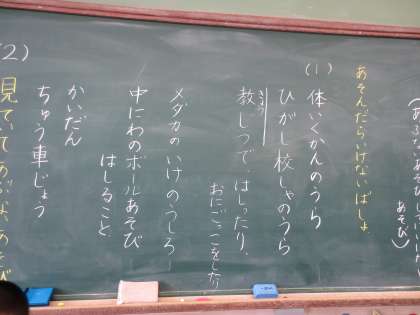 あそんだらいけないばしょ
(1)
体いくかんのうら
ひがし校しゃのうら
教しつで、はしったり、
きょう
おにごっこをしたり
メダカのいけのうしろ
中にわのボールあそび
はしること
かいだん
ちゅう車じょう
(2)
見ていてあぶないあそび